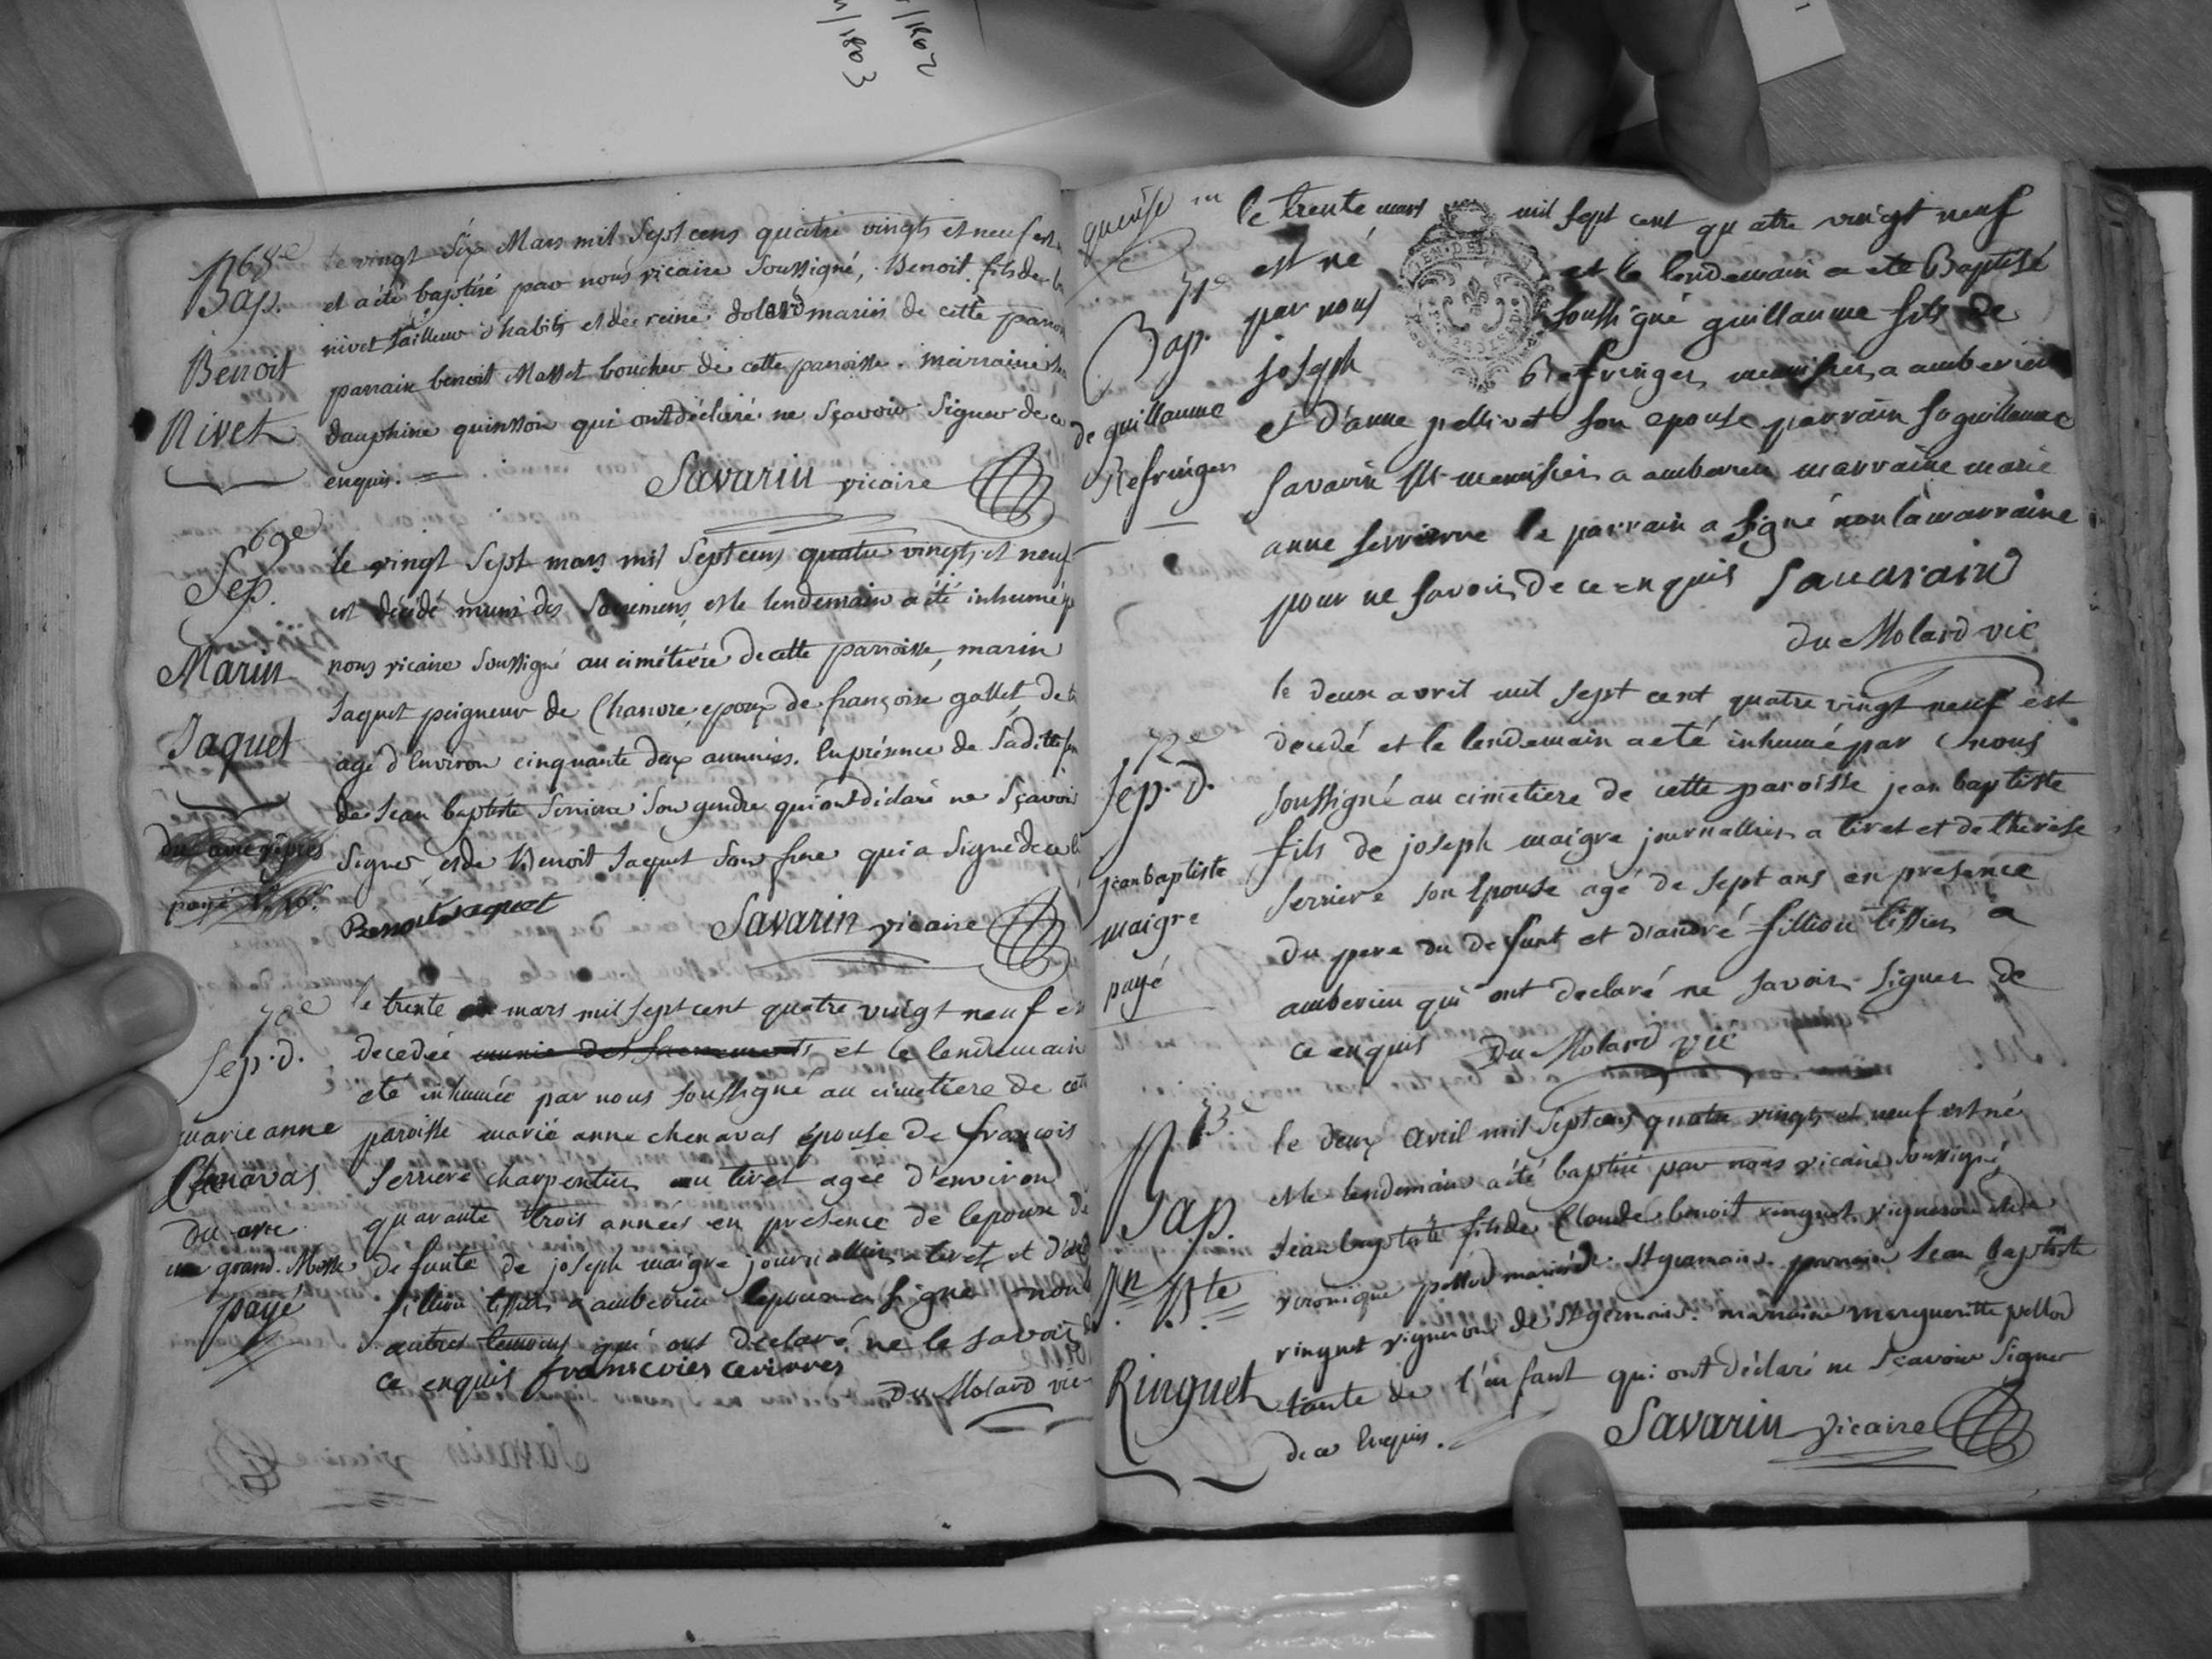 68e
Bap.
Benoit
Rivet
le vingt Six Mars mil Sept cens quatre vingts et neuf est
et a été baptisé par nous vicaire Soussigné, Benoit fils de
rivet tailleur d'habits et de reine dolard mariés de cette parroi
parrain benoit Masset boucher de cette parroisse. marraine
dauphine quinsson qui ont déclaré ne Sçavoir Signer de ce
enquis.
Savarin vicaire
69e
Sep.
Marin
Jaquet
payé
le vingt Sept mars mil Sept cens quatre vingts et neuf
est décédé muni des Sacremens, et le lendemain a été inhumé p
nous vicaire Soussigné au cimétière de cette parroisse, marin
Jaquet peigneur de Chanvre epoux de françoise gallet, de
agé d'Environ cinquante deux années. En présence de Saditte
de Jean baptiste Serriere Son gendre qui ont déclaré ne Sçavoir
Signer, et de Benoit Jaquet Son frere qui a Signé de ce
Benoit Jaquet
Savarin vicaire
70e
Sep. d.
marie anne
Chenavas
du avec
une grand. Messe
payé
le trente mars mil sept cent quatre vingt neuf es
decedée munie des sacrements et le lendemain
eté inhumée par nous soussigné au cimetiere de cett
paroisse marie anne chenavas épouse de françois
serriere charpentier au tiret agée d'environ
quarante trois années en presence de lepoux de
defunte de joseph maigre journallier a tiret et d'and
fillion tissier a amberieu lepoux a signé non
autres temoins qui ont declaré ne le savoir de
ce enquis franscoies cerieres
du Molard vic
71e
Bap.
de guillaume
Refringer
le trente mars mil sept cent quatre vingt neuf
est né et le lendemain a ete Baptisé
par nous soussigné guillaume fils de
joseph Refringer menuisier a amberieu
et d'anne pellivet son epouse parrain sr guillaume
savarin menuisier a amberieu marraine marie
anne serriere le parrain a signé non la marraine
pour ne savoir de ce enquis Savarain
du Molard vic
72e
Sep. d.
jean baptiste
maigre
payé
le deux avril mil sept cent quatre vingt neuf est
decedé et le lendemain a eté inhumé par nous
soussigné au cimetiere de cette paroisse jean baptiste
fils de joseph maigre journallier a tiret et de therese
serriere son epouse agé de sept ans en presence
du pere du defunt et d'andré fillion tissier a
amberieu qui ont declaré ne savoir signer de
ce enquis du Molard vic
73e
Bap.
Jn Bte
Ringuet
le deux avril mil Sept cens quatre vingts et neuf est né
et le lendemain a été baptisé par nous vicaire Soussigné,
Jean baptiste fils de Claude benoit ringuet vigneron et de
véronique pellod mariés de St germain. parrain Jean baptiste
ringuet vigneron de St germain. marraine margueritte pellod
tante de l'enfant qui ont déclaré ne Sçavoir Signer
de ce Enquis.
Savarin vicaire